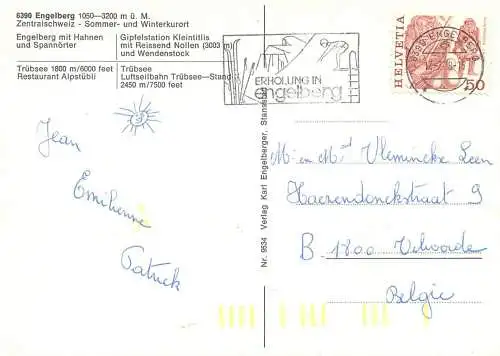 6390 Engelberg 1050—3200 m ü. M.
Zentralschweiz - Sommer- und Winterkurort
Engelberg mit Hahnen
und Spannörter
Gipfelstation Kleintitlis
mit Reissend Nollen (3003 m)
und Wendenstock
Trübsee 1800 m/6000 feet
Restaurant Alpstübli
Trübsee
Luftseilbahn Trübsee—Stand
2450 m/7500 feet
Jean
Emilienne
Patrick
Nr. 9534 Verlag Karl Engelberger, Stansstad
ERHOLUNG IN
engelberg
6390 ENGELBERG
HELVETIA
50
M en Md Vleminckx Leen
Haezendonckstraat 9
B - 1800 Vilvoorde
Belgie